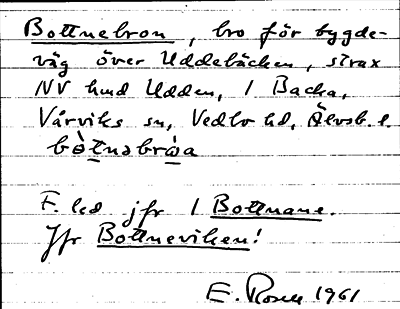 Bottnebron, bro för bygde-
väg över Uddebäcken, strax
NV hmd Udden, 1 Backa,
Vårviks sn, Vedbo hd, Älvsb. l.
F. led jfr 1 Bottnane.
Jfr Bottneviken!
E. Rosell 1961